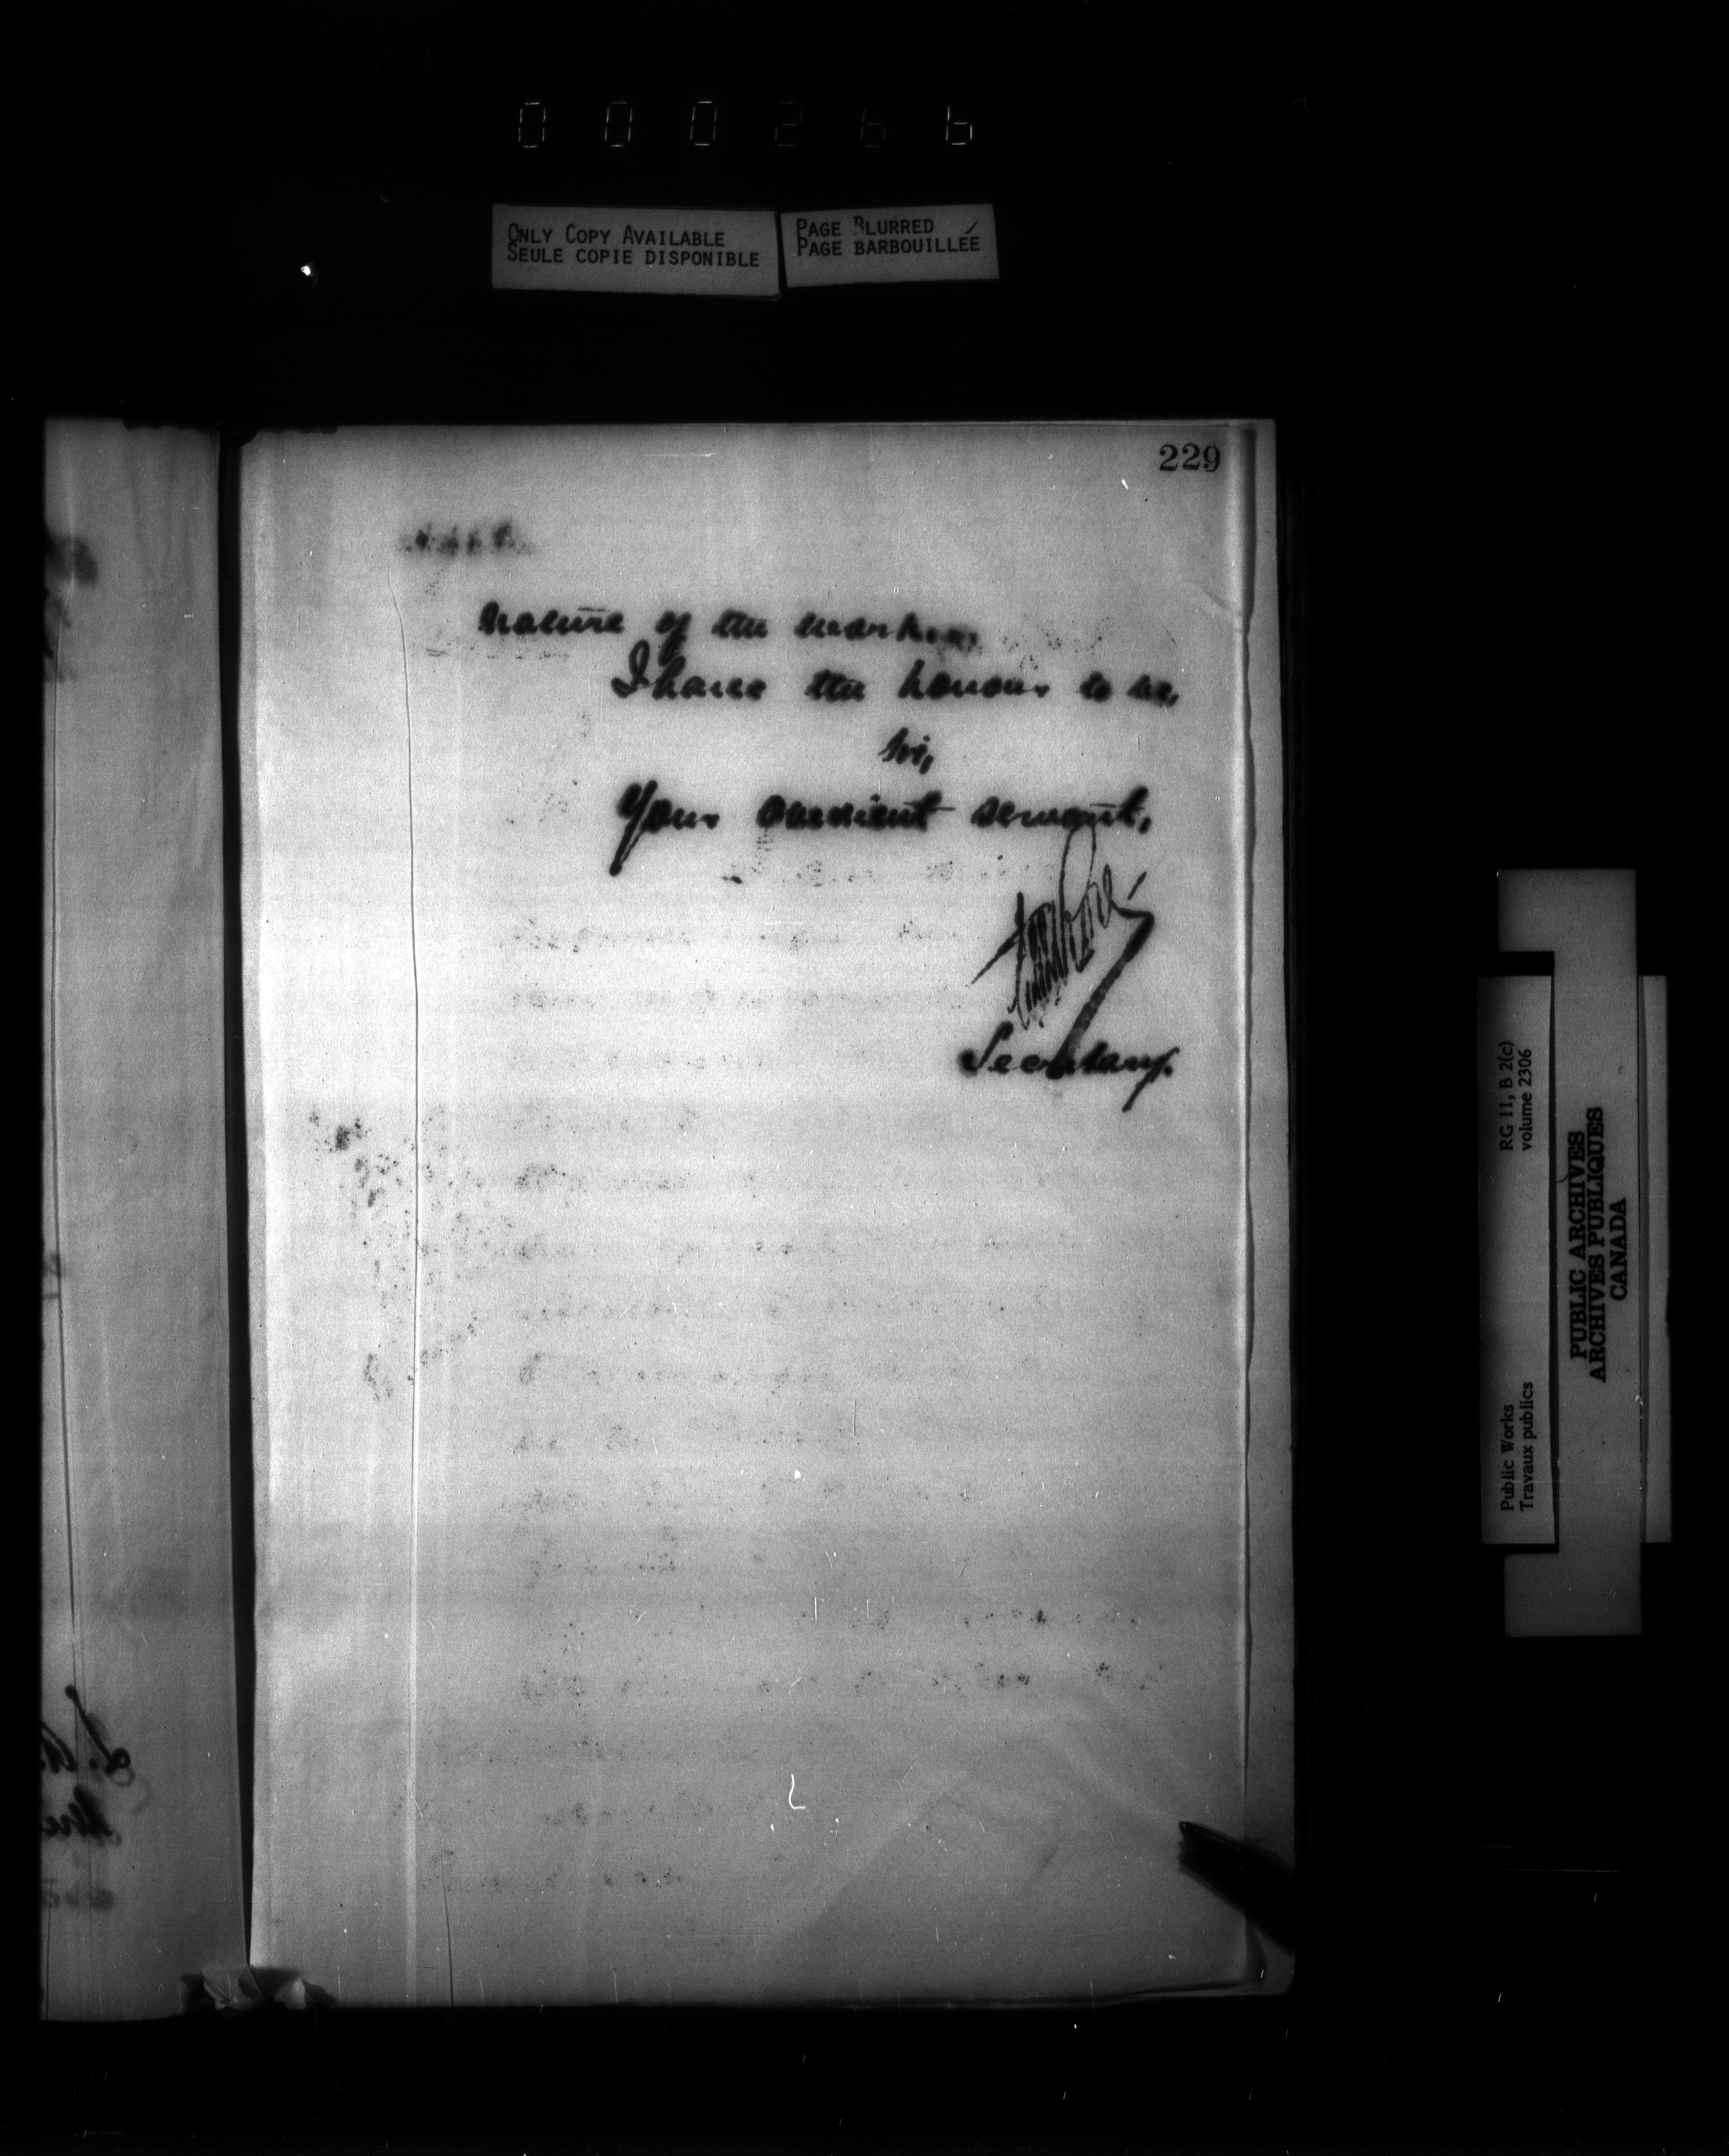 000266
ONLY COPY AVAILABLE
SEULE COPIE DISPONIBLE
PAGE BLURRED
PAGE BARBOUILLÉE
229
nature of the
I have the honour to be,
Sir,
Your obedient servant,
Secretary.
Public Works
Travaux publics
RG 11, B 2(c)
volume 2306
PUBLIC ARCHIVES
ARCHIVES PUBLIQUES
CANADA